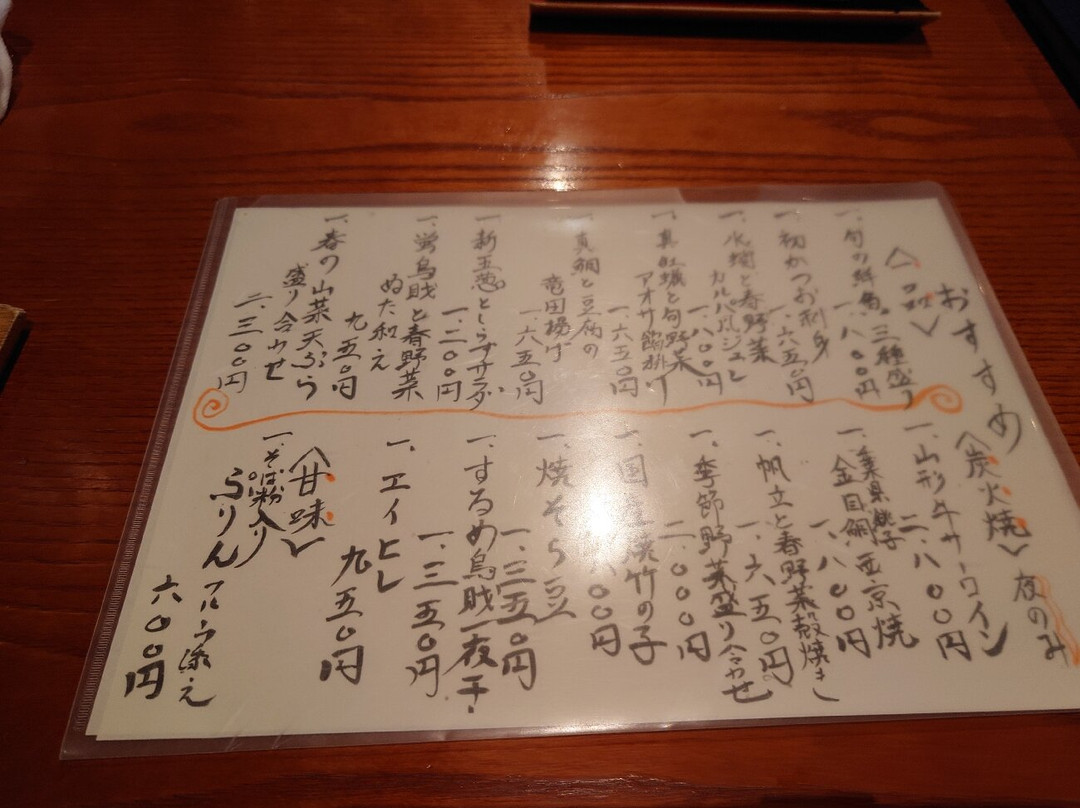 おすすめ
〈一品〉
一、旬の鮮魚三種盛り
一、八〇〇円
一、初かつお刺身
一、六五〇円
一、水蛸と春野菜
カルパッジョ
一、八〇〇円
一、真牡蠣と旬野菜
アオサ餡掛け
一、六五〇円
一、真鯛と豆腐の
竜田揚げ
一、六五〇円
一、新玉葱としらすサラダ
一、二〇〇円
一、蛍烏賊と春野菜
ぬた和え
九五〇円
一、春の山菜天ぷら
盛り合わせ
二、三〇〇円
〈炭火焼〉夜のみ
一、山形牛サーロイン
二、八〇〇円
一、千葉県銚子
金目鯛西京焼
一、八〇〇円
一、帆立と春野菜殻焼き
一、六五〇円
一、季節野菜盛り合わせ
二、〇〇〇円
一、国産焼竹の子
〇〇円
一、焼そら豆
一、三五〇円
一、するめ烏賊一夜干し
一、三五〇円
一、エイヒレ
九五〇円
〈甘味〉
一、そば粉入り
ぷりん
フルーツ添え
六〇〇円